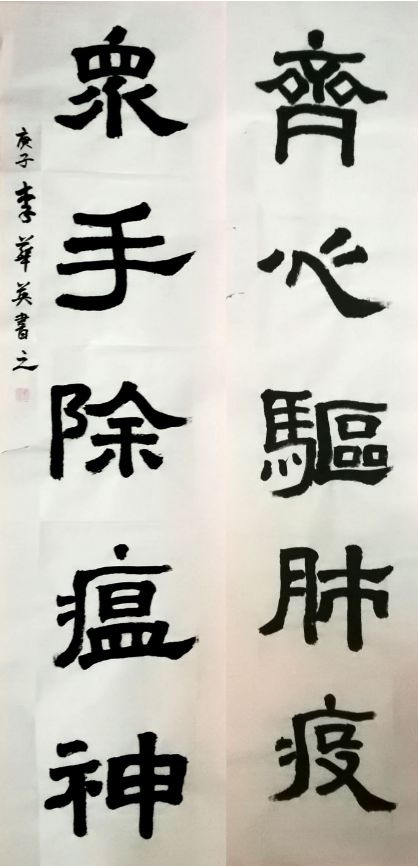 齊心驅肺疫
衆手除瘟神
庚子李華英書之